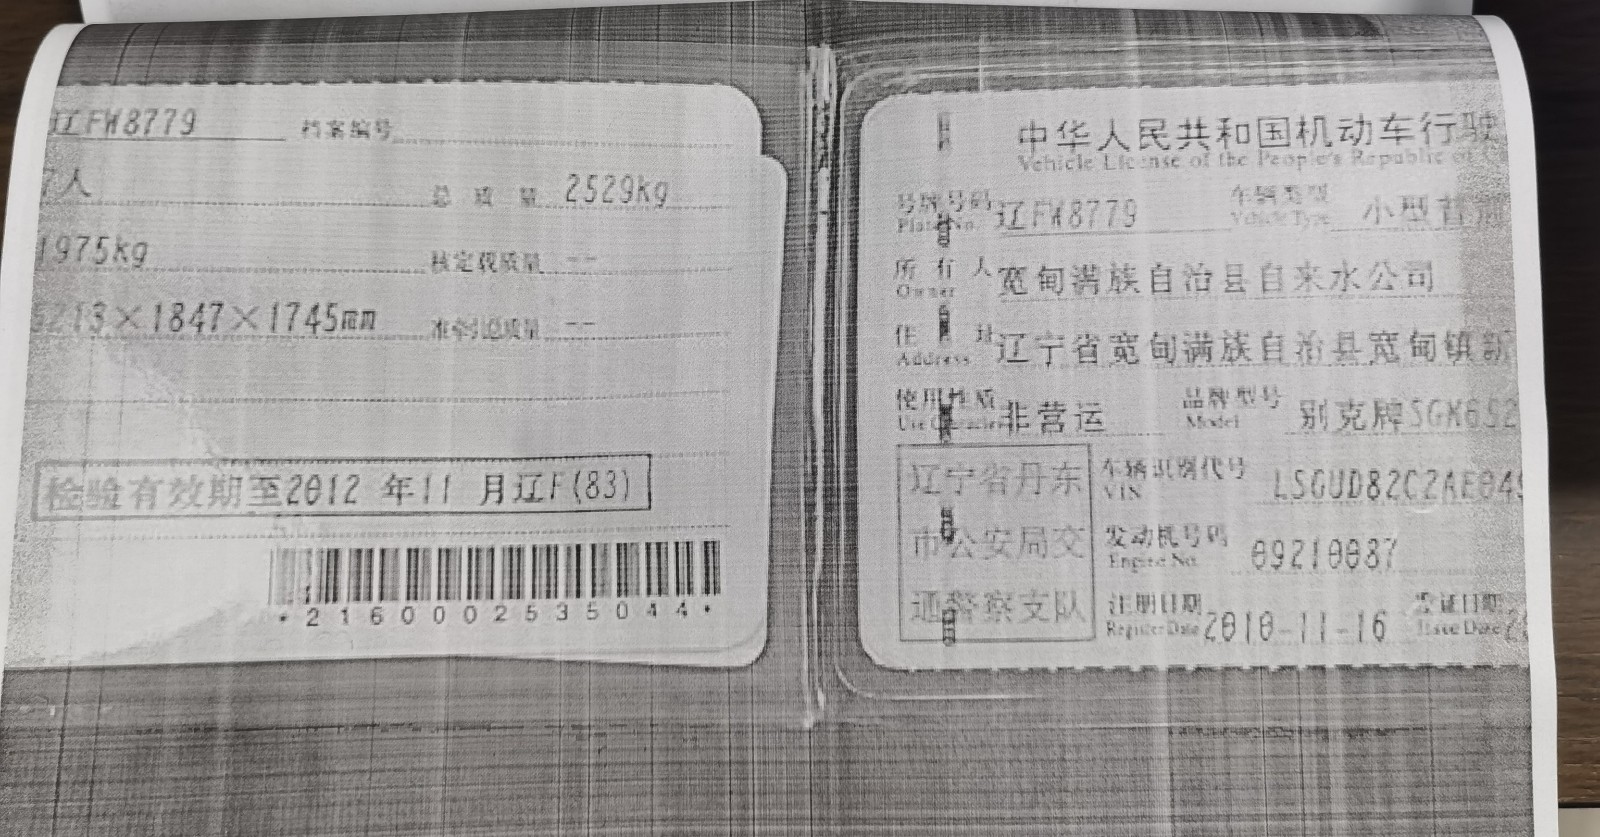 辽FW8779 档案编号
7人 总质量 2529kg
1975kg 核定载质量 --
5213×1847×1745mm 准牵引总质量 --
检验有效期至2012 年11 月辽F(83)
*2160002535044*
中华人民共和国机动车行驶
Vehicle License of the People's Republic of
号牌号码 辽FW8779 车辆类型 小型普
Plate No. Vehicle Type
所有人 宽甸满族自治县自来水公司
Owner
住址 辽宁省宽甸满族自治县宽甸镇新
Address
使用性质 非营运 品牌型号 别克牌SGM652
Use Character Model
辽宁省丹东
市公安局交
通警察支队
车辆识别代号 LSGUD82C2AE04
VIN
发动机号码 09210087
Engine No.
注册日期 2010-11-16 发证日期
Register Date Issue Date